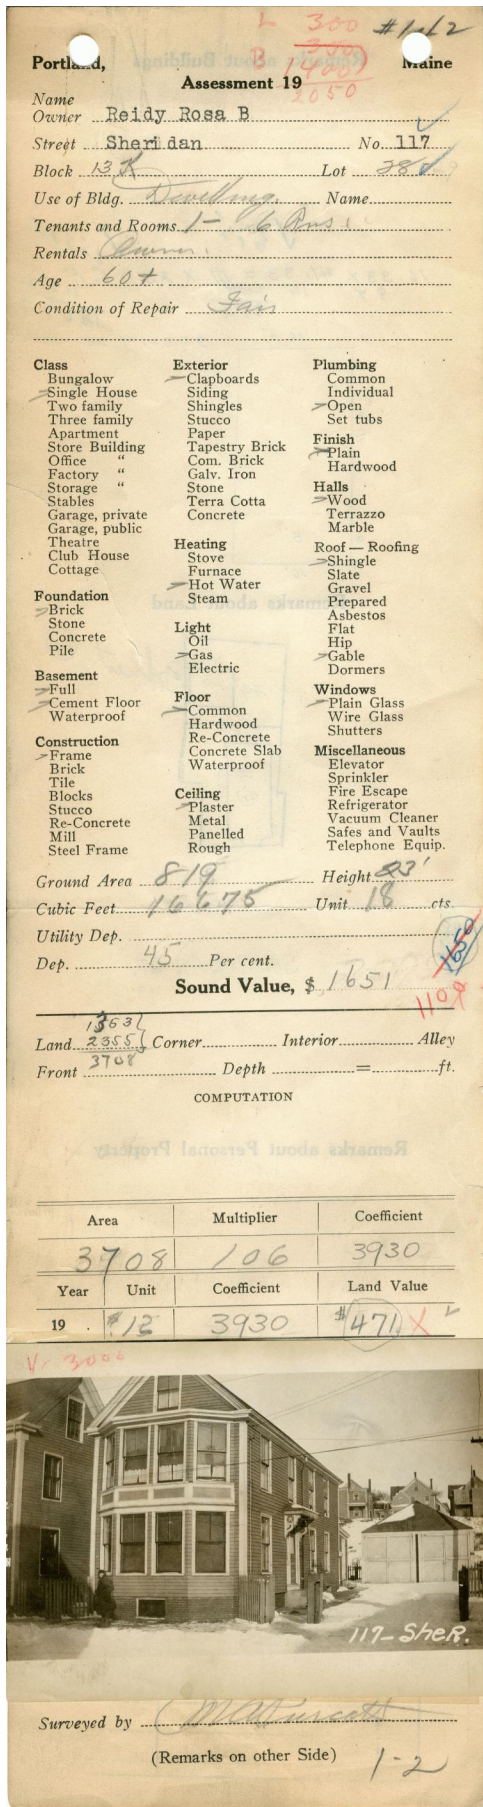 L 300 #1-12
350
B (400)
2050
Portland, Maine
Assessment 19
Name
Owner Reidy Rosa B
Street Sheridan No. 117
Block 13 K Lot 28
Use of Bldg. Dwelling. Name
Tenants and Rooms 1 - 6 Rms.
Rentals Owner.
Age 60+
Condition of Repair Fair
Class
Bungalow
Single House
Two family
Three family
Apartment
Store Building
Office "
Factory "
Storage "
Stables
Garage, private
Garage, public
Theatre
Club House
Cottage
Foundation
Brick
Stone
Concrete
Pile
Basement
Full
Cement Floor
Waterproof
Construction
Frame
Brick
Tile
Blocks
Stucco
Re-Concrete
Mill
Steel Frame
Exterior
Clapboards
Siding
Shingles
Stucco
Paper
Tapestry Brick
Com. Brick
Galv. Iron
Stone
Terra Cotta
Concrete
Heating
Stove
Furnace
Hot Water
Steam
Light
Oil
Gas
Electric
Floor
Common
Hardwood
Re-Concrete
Concrete Slab
Waterproof
Ceiling
Plaster
Metal
Panelled
Rough
Plumbing
Common
Individual
Open
Set tubs
Finish
Plain
Hardwood
Halls
Wood
Terrazzo
Marble
Roof — Roofing
Shingle
Slate
Gravel
Prepared
Asbestos
Flat
Hip
Gable
Dormers
Windows
Plain Glass
Wire Glass
Shutters
Miscellaneous
Elevator
Sprinkler
Fire Escape
Refrigerator
Vacuum Cleaner
Safes and Vaults
Telephone Equip.
Ground Area 819 Height 23'
Cubic Feet 16675 Unit 18 cts.
Utility Dep.
Dep. 45 Per cent.
1650
Sound Value, $ 1651
1100
1353
Land 2355 Corner Interior Alley
3708
Front Depth = ft.
COMPUTATION
Area Multiplier Coefficient
3708 106 3930
Year Unit Coefficient Land Value
19 . $.12 3930 $471 X
3000
117-SheR.
Surveyed by
(Remarks on other Side)
1-2